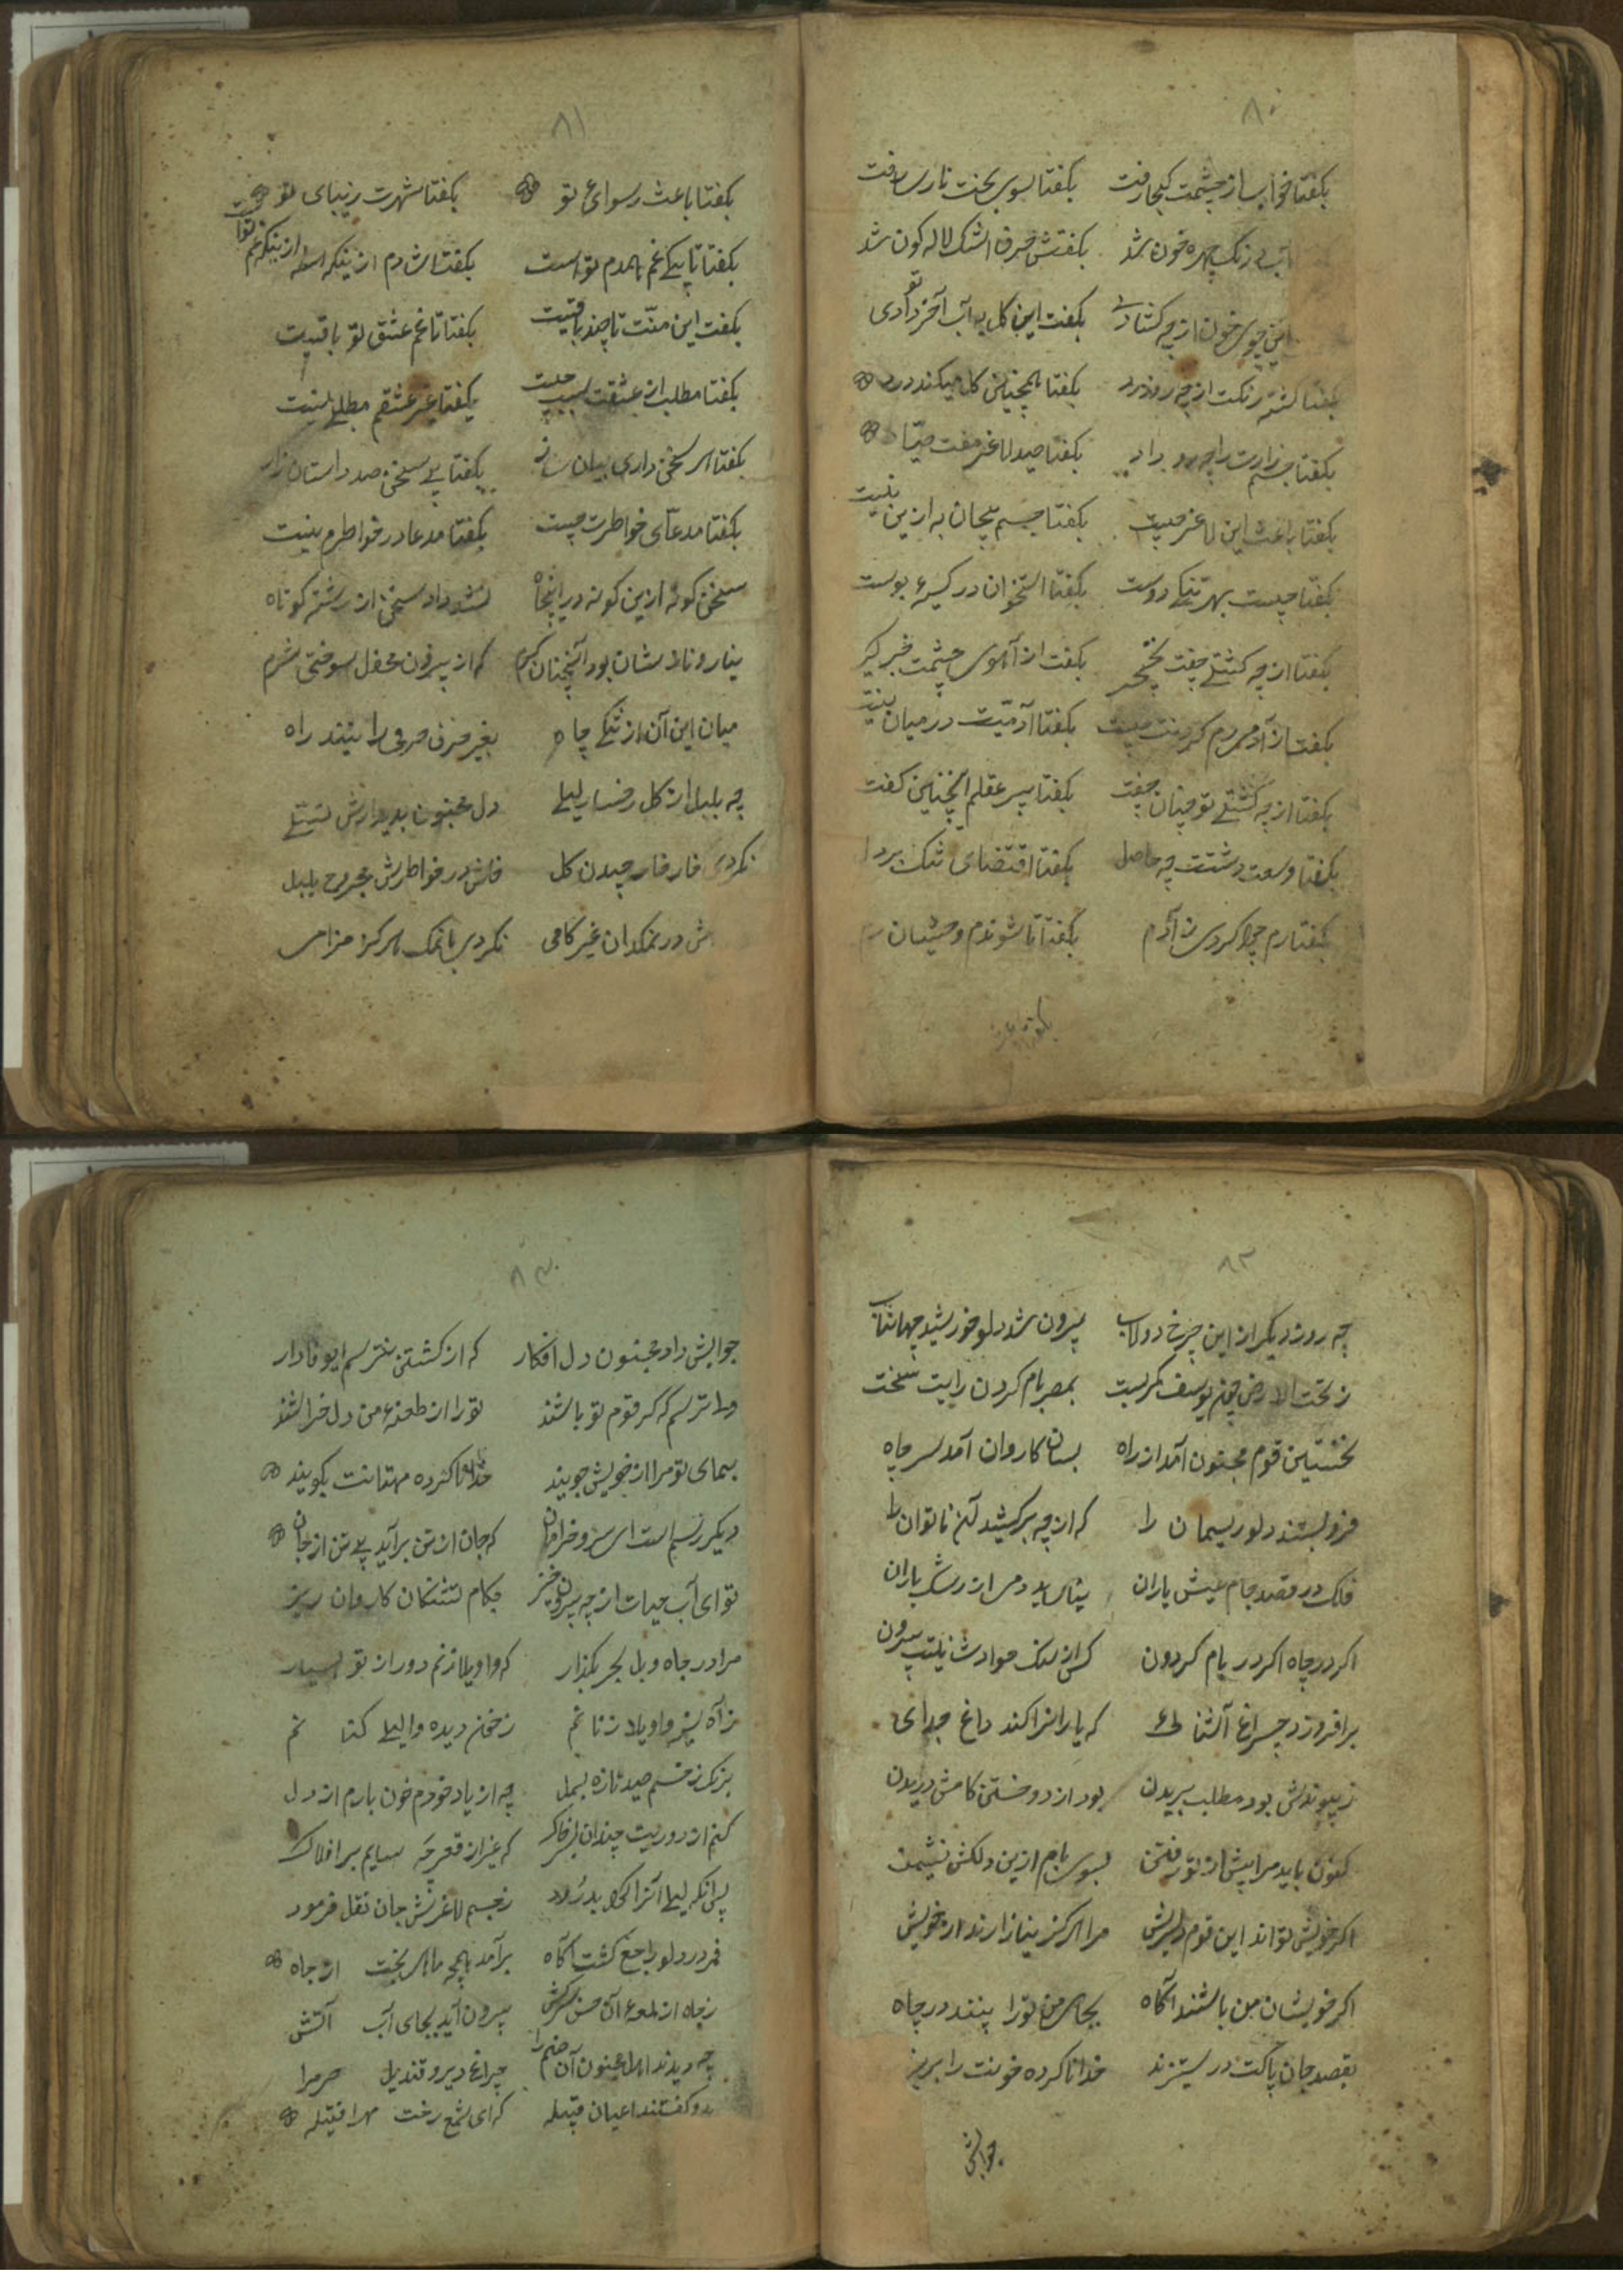 ۸۰
بکفتا خواب از چشمت کجا رفت بکفتا سوی بخت نارسا رفت
رنک چهره خون شد بکفتش صرف اشک لاله کون شد
جوی خون از چه کشادی بکفت این کل به آب آخر تو دادی
بکفتا کشته رنکت از چه رو زرد بکفتا همچنین کل میکند درد
بکفتا جسم زارت را چه رو داد بکفتا صید لاغر مفت صیاد
بکفتا باعث این لاغر چیست بکفتا جسم بیجان به ازین نیست
بکفتا چیست بهر تحفهٔ دوست بکفتا استخوان در کیسهٔ پوست
بکفتا از چه کشتی جفت نخجیر بکفت از آهوی چشمت خبر کیر
بکفتا ز آدمی رم کردنت چیست بکفتا آدمیت در میان نیست
بکفتا از چه کشتی تو چنان جفت بکفتا پیر عقلم اینچنین کفت
بکفتا وسعت دشتت چه حاصل بکفتا اقتضای تنک بر دل
بکفتا رم چرا کردی ز آدم بکفتا تا شوندم وحشیان رم
۸۱
بکفتا باعث رسوائی تو بکفتا شهرت زیبای تو
بکفتا تا بکی غم همدم تو است بکفتا شادم از اینکه از اینکه غم
بکفت این منّت تا چند باقیست بکفتا تا غم عشق تو باقیست
بکفتا مطلب از عشقت بسبب چیست بکفتا غیر عشقم مطلبی نیست
بکفتا هر سخن داری بیان ساز بکفتا بی سخن صد داستان راز
بکفتا مدعای خواطرت چیست بکفتا مدعا در خواطرم نیست
سخن کوته ازین کونه در اینجاه نشد داد سخن از رشته کوتاه
نیاز و نازشان بود آنچنان کرم که از بیرون محفل سوختی شرم
میان این آن از تنکی چاه بغیر حرف حرفی را نبند راه
چه بلبل از کل رخسار لیلی دل مجنون بدیدارش تسلی
نکردی خار خار چیدن کل خلش در خواطرش مجروح بلبل
ش در نمکدان غیر کامی نکردی با نمک هرکز حرامی
۸۲
چه روز دیکر از این چرخ دولاب بیرون شد دلو خورشید جهانتاب
ز تحت الارض چون یوسف کمر بست بمصر بام کردون رایت سخت
نخستین قوم مجنون آمد از راه بسان کاروان آمد سر چاه
فرو بستند دلو ریسمان را که از چه برکشید آن ناتوان را
فلک در قصد جام عیش یاران بنای بیدمی از رشک یاران
اکر در چاه اکر در بام کردون کس از سنک حوادث نیست بیرون
برافروزد چراغ آشنائی که یارانرا کند داغ جدای
ز پیوندش بود مطلب بریدن بود از دوختن کامش دریدن
کنون باید مرا پیش از تو رفتن بسوی بام ازین دلکش نشیمن
اکر خویش تو اند این قوم دلریش مرا هرکز نیازارند از خویش
اکر خویشان من باشند آکاه بجای من تو را بینند در چاه
بقصد جان پاکت در ستیزند خدا نا کرده خونت را بریزند
جوابش
۸۳
جوابش داد مجنون دل افکار که از کشتن نترسم ایوفادار
ولی ترسم که کر قوم تو باشند تو را از طعنهٔ من دل خراشند
بسمای تو مرا از خویش جویند خدا نا کرده مهتانت بکویند
دیکر رسم است ای سرو خرامان که جان از تن برآید بی تن از جان
تو ای آب حیات از چه برون خیز بکام تشنکان کاروان ریز
مرا در چاه ویل هجر بکذار که واویلا زنم دور از تو بسیار
ز آه نیز واویلا زنا نم ز خون دیده والیلی کنا نم
بزنک زخم صید تازه بسمل چه از یاد خودم خون بارم از دل
کنم از دوریت چندان بسر خاک که غیر از قعر چه سایم بر افلاک
پس آنکه لیلی آنرا کرد بدرود ز جسم لاغرش جان نقل فرمود
قمر در دلو راجع کشت آکاه برآمد همچه ماهی بخت از چاه
ز چاه از لمعهٔ آن حسن سرکش بیرون آید بجای آب آتش
چه دیدند اهل مجنون آن صنم را چراغ دیر و قندیل حرم را
بدو کفتند اعیان قبیله که ای شمع رخت مهرا فتیله